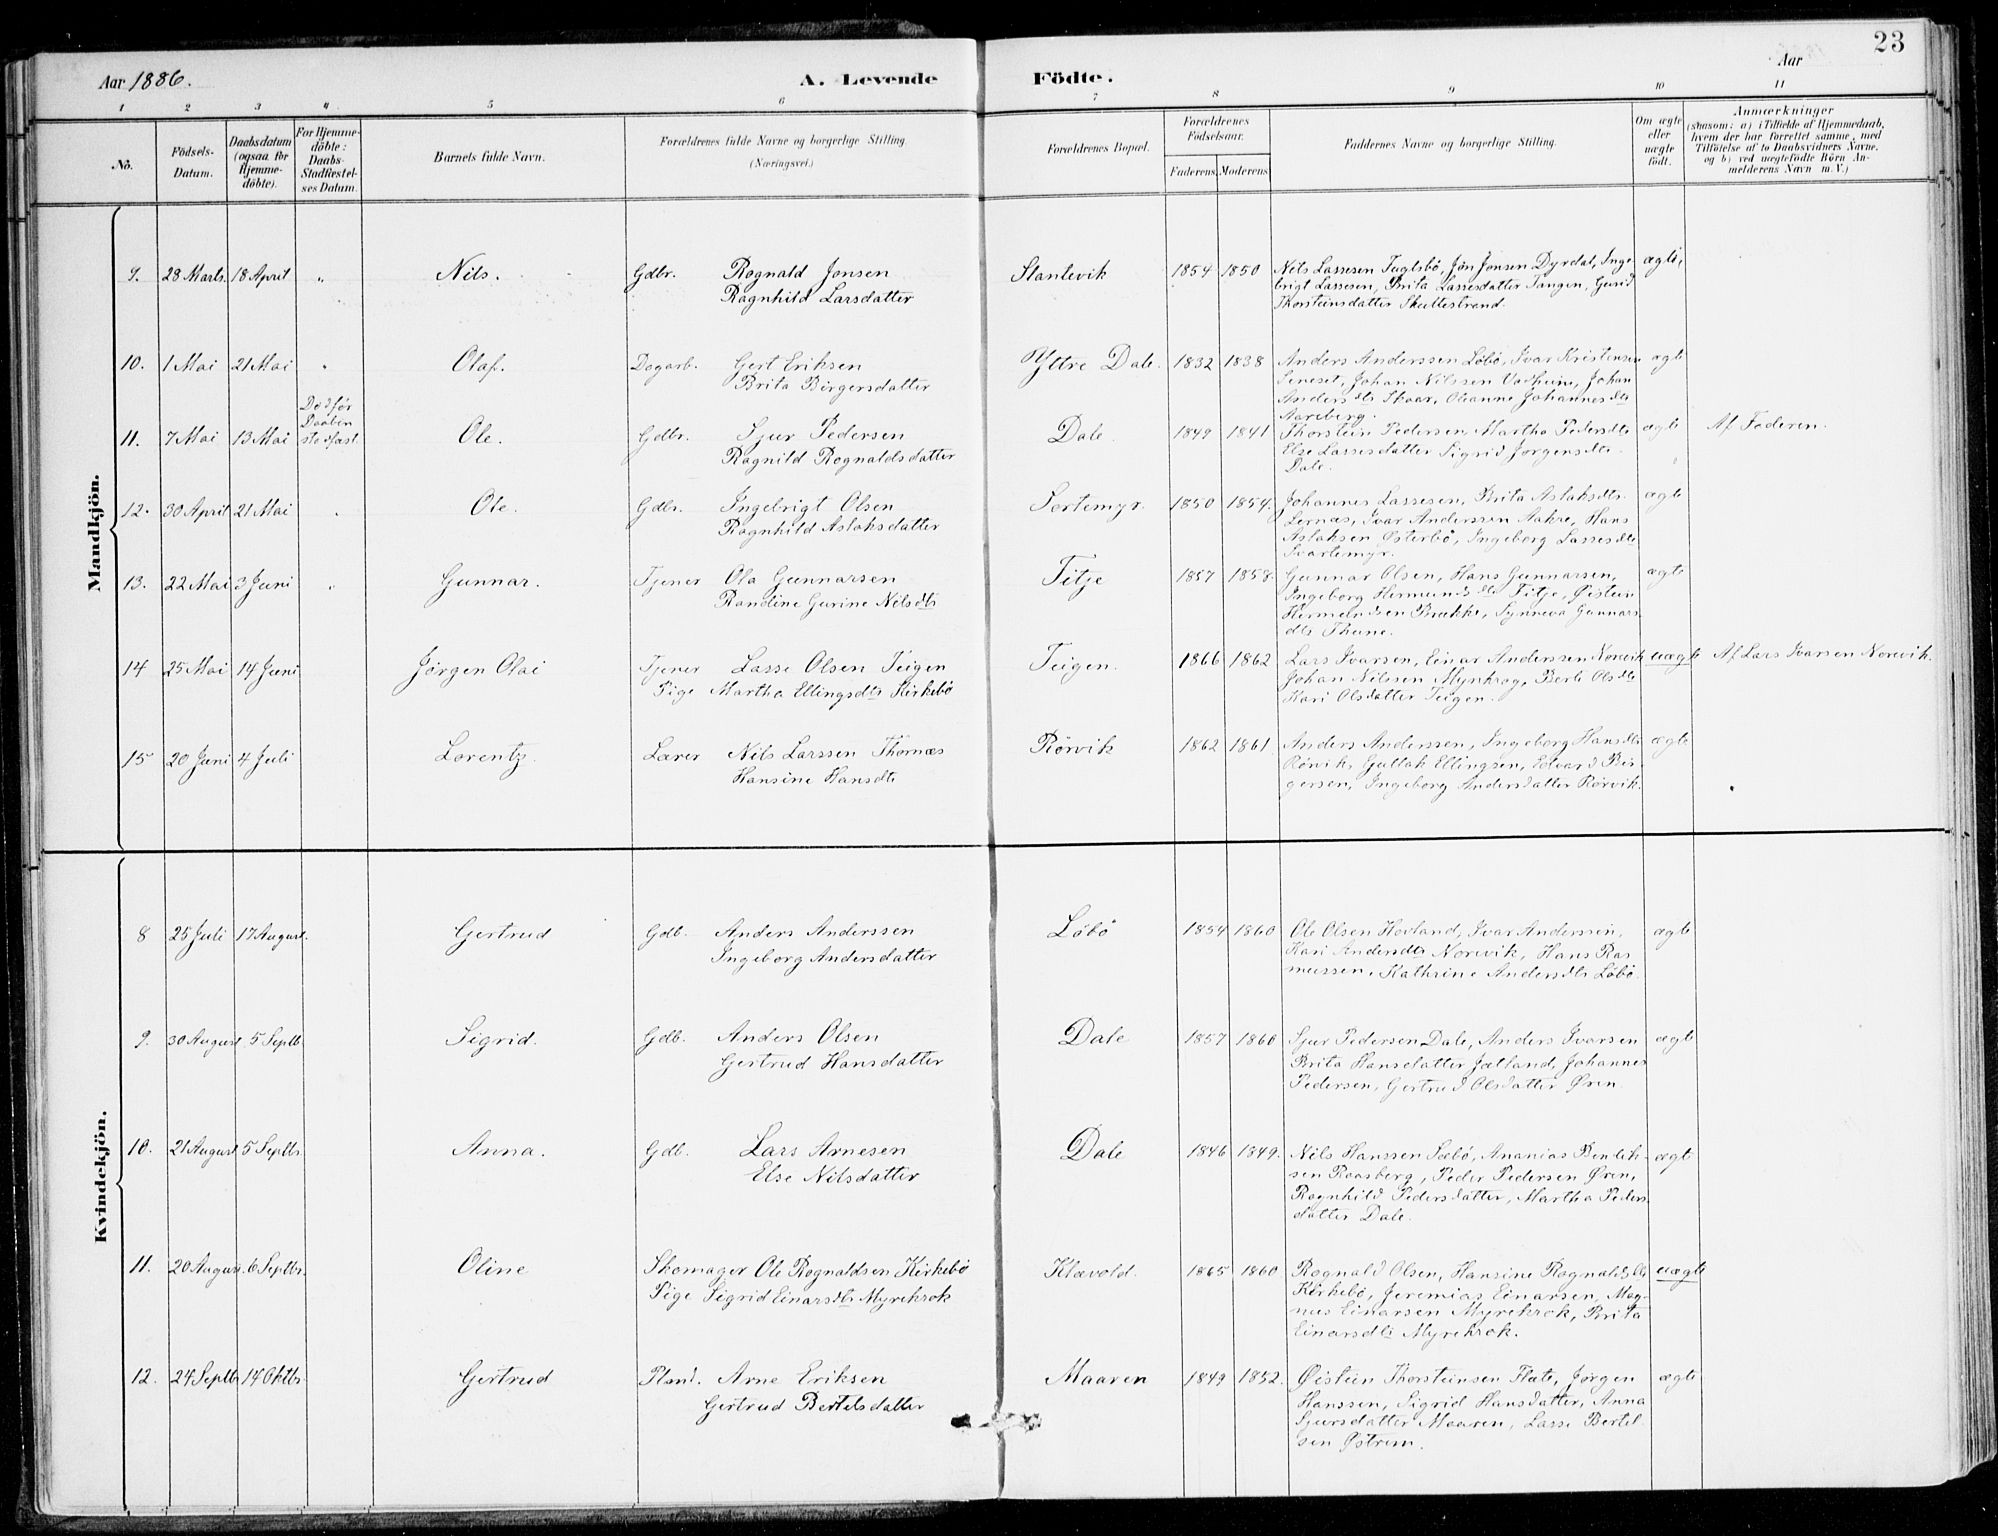 23
Aar 1886.
A. Levende Födte.
Aar
1 2 3 4 5 6 7 8 9 10 11
Nô.
Födsels-
Datum.
Daabsdatum
(ogsaa for
Hjemme-
döbte).
For Hjemme-
döbte:
Daabs-
Stadfæstel-
ses Datum.
Barnets fulde Navn.
Forældrenes fulde Navne og borgerlige Stilling.
(Næringsvei.)
Forældrenes Bopæl.
Forældrenes
Födselsaar.
Faderens. Moderens.
Faddernes Navne og borgerlige Stilling.
Om ægte
eller
uægte
födt.
Anmærkninger
(saasom: a) i Tilfælde af Hjemmedaab,
hvem der har forrettet samme, med
Tilföielse af to Daabsvidners Navne,
og b) ved uægtefödte Börn An-
melderens Navn m. V.)
Mandkjön.
9. 28 Marts. 18 April " Nils. Gdbr. Rognald Jonsen Slantevik 1854 1850 Nils Lassesen Fuglsbö, Jön Jonsen Dyrdal, Inge- ægte,
Ragnhild Larsdatter brigt Lassesen, Brita Lassesdatter Tangen, Gurid
Thorsteinsdatter Skultestrand.
10. 1 Mai 21 Mai " Olaf. Dagarb. Gert Eriksen Yttre Dale. 1832 1838 Anders Anderssen Löbö, Ivar Kristensen ægte
Brita Börgersdatter Seneset, Johan Nilssen Vadheim, Johan
Anders dtr Skaar, Oleanne Johannes dtr
Aareberg.
11. 7 Mai 13 Mai Död før Daaben stadfæst. Ole. Gdbr. Sjur Pedersen Dale. 1849 1841 Thorstein Pedersen, Martha Pedersdtr ægte Af Faderen.
Ragnild Rognaldsdatter Else Lassesdatter Sigrid Jørgensdtr.
Dale.
12. 30 April 21 Mai " Ole. Gdbr. Ingebrigt Olsen Sortemyr. 1850 1854. Johannes Lassesen, Brita Aslaksdtr. ægte
Ragnhild Aslaksdatter Lernæs, Ivar Anderssen Aakre, Hans
Aslaksen Østerbö, Ingeborg Lassesdtr
Svartemyr.
13. 22 Mai 3 Juni " Gunnar. Tjener Ola Gunnarsen Titje 1857 1858. Gunnar Olsen, Hans Gunnarsen, ægte
Randine Gurine Nilsdtr Ingeborg Hermunds dtr Titje, Øistein
Hermundsen Brække, Synneva Gunnars
dtr Thune.
14 25 Mai 14 Juni Jørgen Olai Tjener Lasse Olsen Teigen Teigen. 1866 1862 Lars Ivarsen, Einar Anderssen Norevik uægte Af Lars Ivarsen Norevik.
Pige Martha Ellingsdtr Kirkebö Johan Nilssen Myrkrog, Berte Olsdtr
Kari Olsdatter Teigen.
15 20 Juni 4 Juli Lorentz. Lærer Nils Larssen Thornæs Rörvik 1862 1861 Anders Anderssen, Ingeborg Hansdtr ægte
Hansine Hansdtr Rörvik, Guttak Ellingsen, Edvard Bir-
gersen, Ingeborg Andersdatter Rörvik.
Kvindekjön.
8 25 Juli 17 August. Gertrud Gdb. Anders Anderssen Löbö 1854 1860 Ole Olsen Hovland, Ivar Anderssen, ægte
Ingeborg Andersdatter Kari Andersdtr Norevik, Hans Ras
mussen, Kathrine Andersdtr Löbö.
9. 30 August 5 Septb. Sigrid. Gdb. Anders Olsen Dale 1857 1860 Sjur Pedersen Dale, Anders Ivarsen ægte
Gertrud Hansdatter Brita Hansdatter Jetland, Johannes
Pedersen, Gertrud Olsdatter Øren.
10. 21 August 5 Septbr. Anna. Gdb. Lars Arnesen Dale 1846 1849. Nils Hanssen Sæbö, Ananias Bendik- ægt
Else Nilsdatter sen Raasberg, Peder Pedersen Øren,
Ragnhild Pedersdatter, Martha Peders
datter Dale.
11. 20 August. 6 Septbr. Oline Skomager Ole Rognaldsen Kirkebö Klævold. 1865 1860 Rognald Olsen, Hansine Rognaldsdtr uægte
Pige Sigrid Einarsdtr Myrekrok Kirkebö, Jeremias Einarsen, Mag-
nus Einarsen Myrekrok, Brita
Einarsdtr Myrekrok.
12. 24 Septbr 14 Oktbr. Gertrud Pland. Arne Eriksen Maaren 1849 1852. Øistein Thorsteinsen Flate, Jørgen ægte
Gertrud Bertelsdatter Hanssen, Sigrid Hansdatter, Anna
Sjursdatter Maaren, Lasse Bertel
sen Østrem.